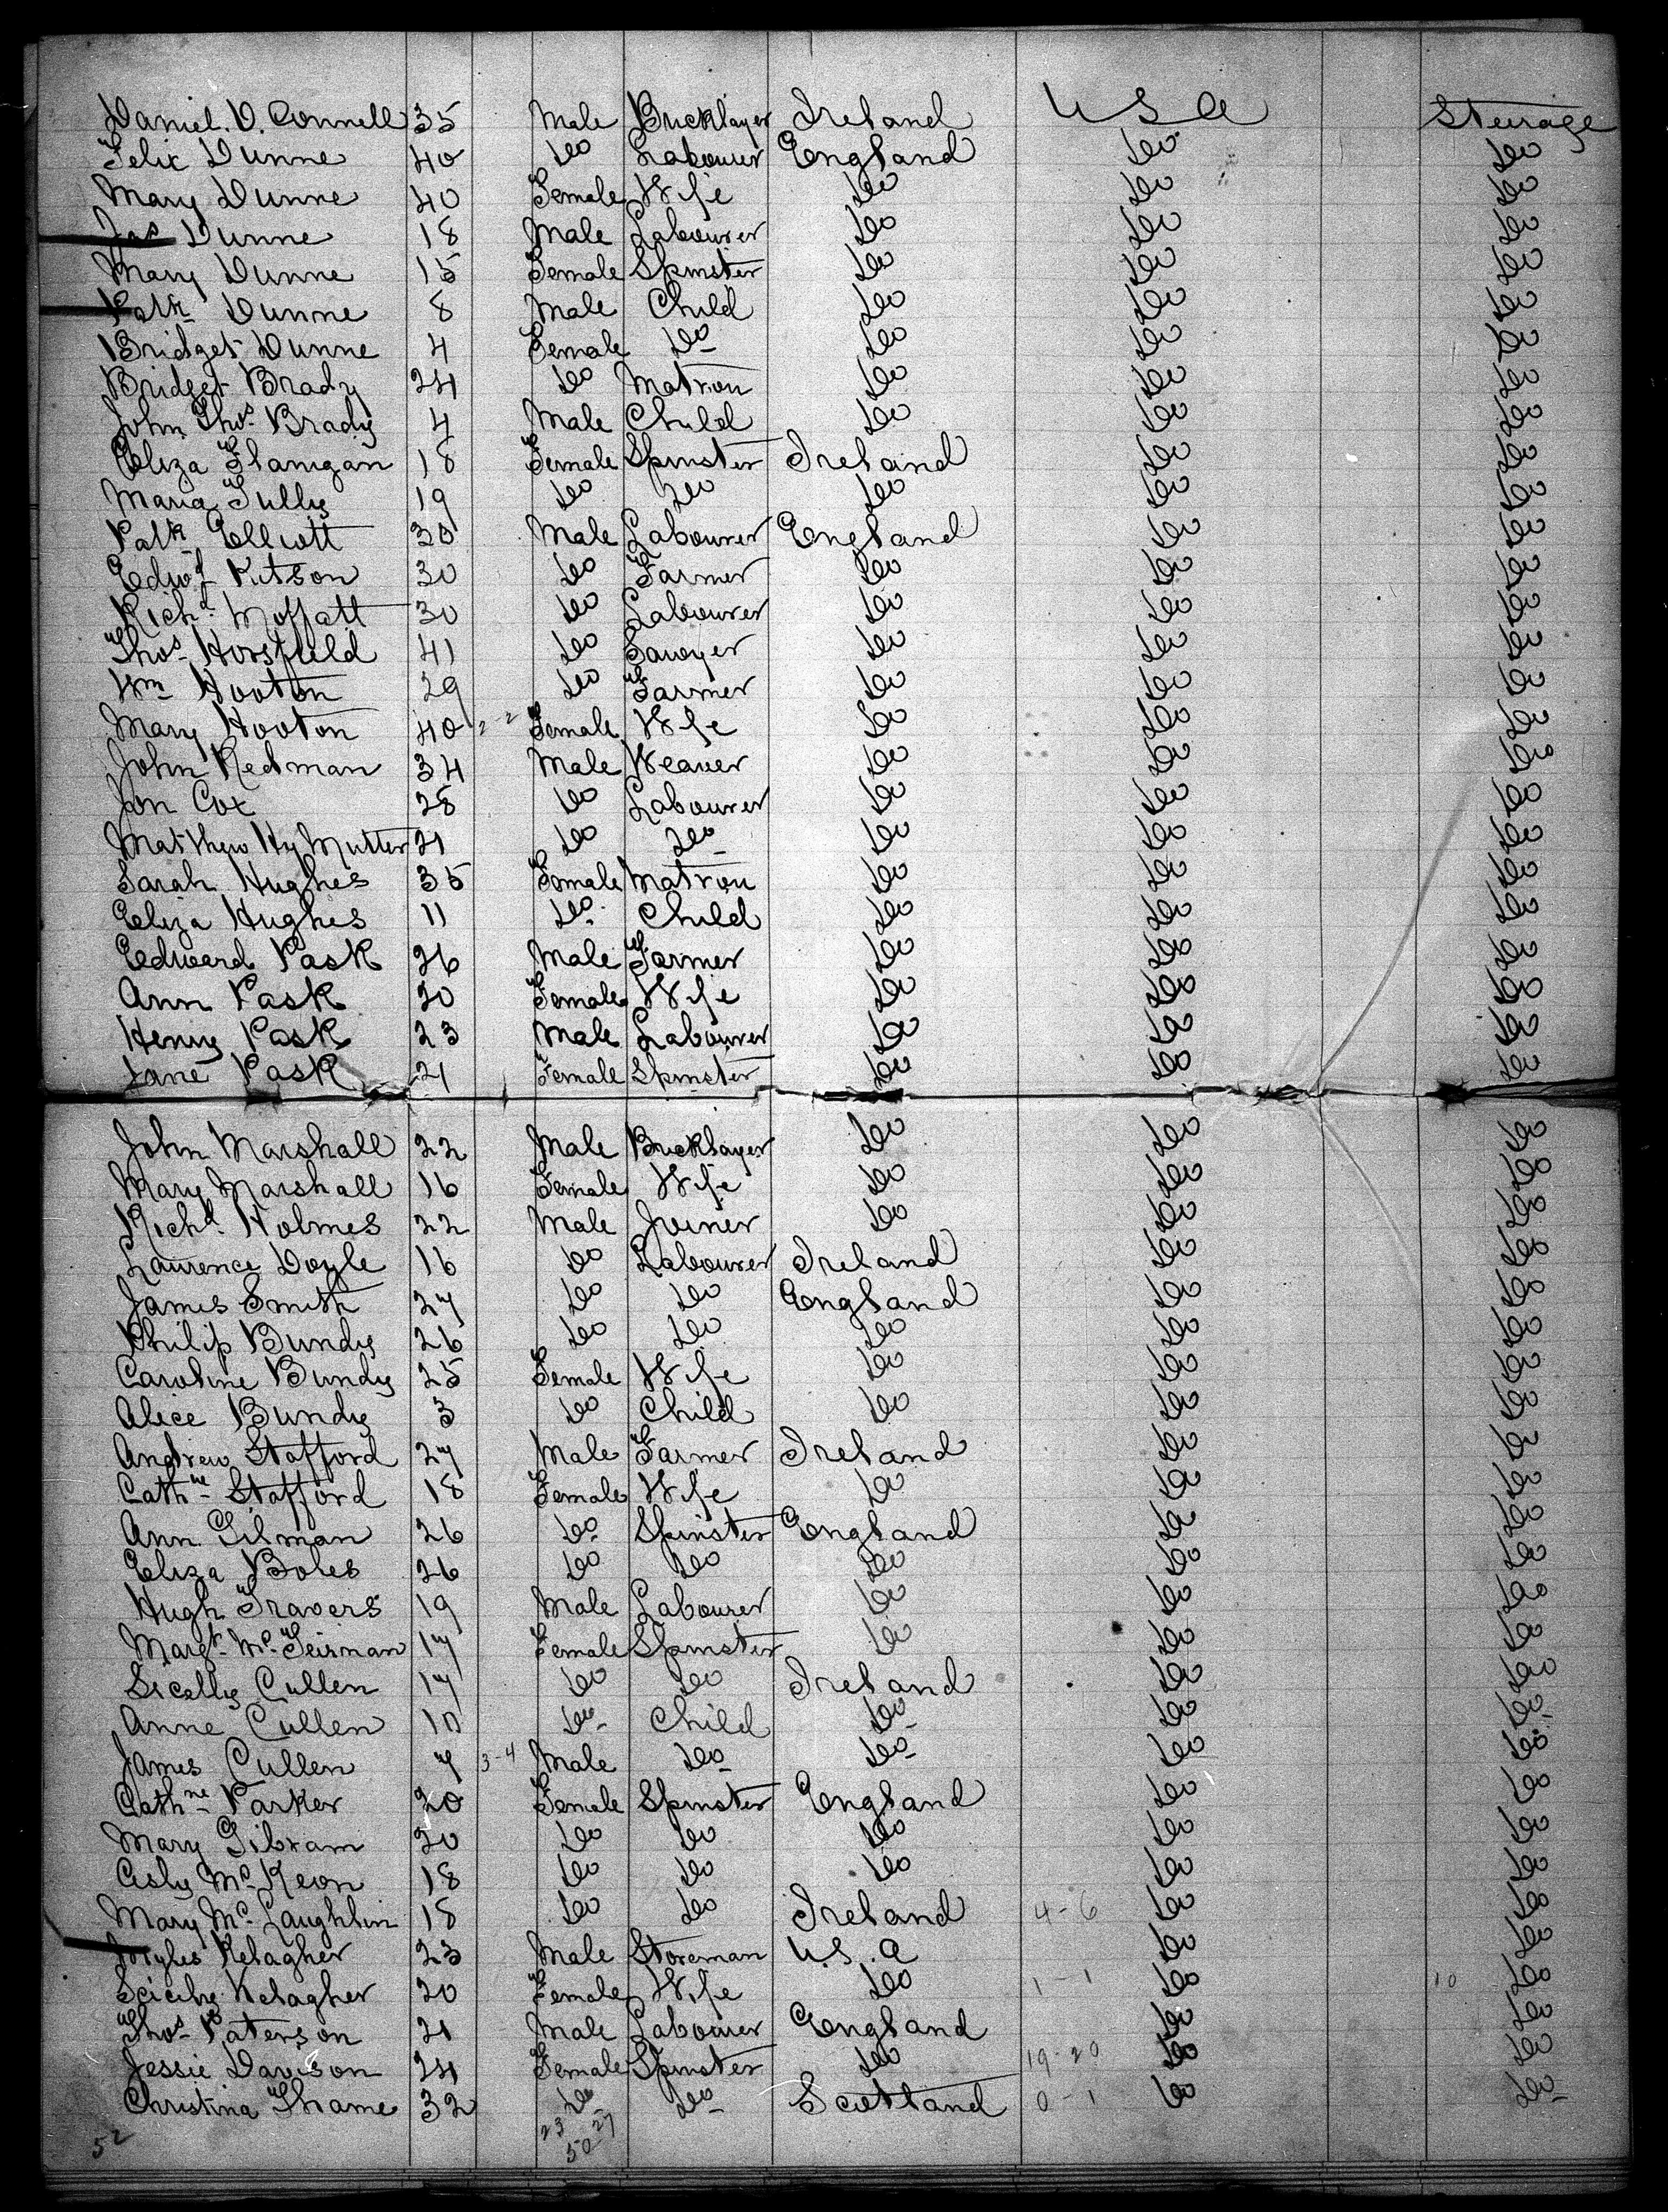 Daniel. O. Connell 35 Male Bricklayer Ireland U S A Steerage
Felix Dunne 40 Do Labourer England Do Do
Mary Dunne 40 Female Wife Do Do Do
Jas Dunne 18 Male Labourer Do Do Do
Mary Dunne 15 Female Spinster Do Do Do
Patk Dunne 8 Male Child Do Do Do
Bridget Dunne 4 Female Do Do Do Do
Bridget Brady 24 Do Matron Do Do Do
John Thos Brady 4 Male Child Do Do Do
Eliza Flanigan 18 Female Spinster Ireland Do Do
Maria Tully 19 Do Do Do Do Do
Patk Elliott 30 Male Labourer England Do Do
Edwd Kitson 30 Do Farmer Do Do Do
Richd Moffatt 30 Do Labourer Do Do Do
Thos Horsfield 41 Do Sawyer Do Do Do
Wm Hooton 29 Do Farmer Do Do Do
Mary Hooton 40 2-2 Female Wife Do Do Do
John Redman 34 Male Weaver Do Do Do
Jon Cox 28 Do Labourer Do Do Do
Matthew Hy Mutter 21 Do Do Do Do Do
Sarah Hughes 35 Female Matron Do Do Do
Eliza Hughes 11 Do Child Do Do Do
Edward Pask 26 Male Farmer Do Do Do
Ann Pask 20 Female Wife Do Do Do
Henry Pask 23 Male Labourer Do Do Do
Jane Pask 21 Female Spinster Do Do Do
John Marshall 22 Male Bricklayer Do Do Do
Mary Marshall 16 Female Wife Do Do Do
Richd Holmes 22 Male Joiner Do Do Do
Laurence Doyle 16 Do Labourer Ireland Do Do
James Smith 27 Do Do England Do Do
Philip Bundy 26 Do Do Do Do Do
Caroline Bundy 25 Female Wife Do Do Do
Alice Bundy 3 Do Child Do Do Do
Andrew Stafford 27 Male Farmer Ireland Do Do
Cathne Stafford 18 Female Wife Do Do Do
Ann Gilman 26 Do Spinster England Do Do
Eliza Boles 26 Do Do Do Do Do
Hugh Travers 19 Male Labourer Do Do Do
Margt Mc 17 Female Spinster Do Do Do
Cullen 17 Do Do Ireland Do Do
Anne Cullen 10 Do Child Do Do Do
James Cullen 7 3-4 Male Do Do Do Do
Cathne Parker 20 Female Spinster England Do Do
Mary 20 Do Do Do Do Do
Mc Keon 18 Do Do Do Do Do
Mary Mc Laughlin 18 Do Do Ireland 4-6 Do Do
Myles Kelagher 23 Male Storeman U.S.A Do Do
Kelagher 20 Female Wife Do 1-1 Do 10 Do
Thos Paterson 21 Male Labourer England Do Do
Jessie Davison 24 Female Spinster Do 19-20 Do Do
Christina Thame 32 Do Do Scotland 0-1 Do Do
52 23 27
50